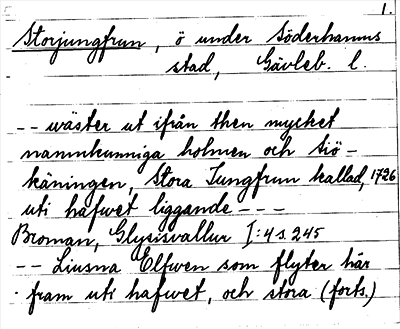 1.
Storjungfrun, ö under Söderhamns
stad, Gävleb. l.
-- wäster ut ifrån then mycket
namnkunniga holmen och siö-
käningen, Stora Jungfrun kallad, 1726
uti hafwet liggande ---
Broman, Glysisvallur I:4 s. 245
-- Liusna Elfwen som flyter här
fram uti hafwet, och stora (forts.)